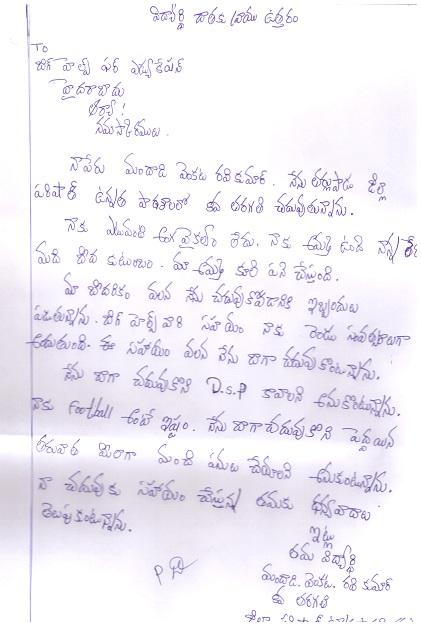 విద్యార్థి దాతకు వ్రాయు ఉత్తరం
To
బిగ్ హెల్ప్ ఫర్ ఎడ్యుకేషన్
హైదరాబాదు
ఆర్యా!
నమస్కారములు.
నాపేరు మందాడి వెంకట రవికుమార్. నేను తర్లుపాడు జిల్లా
పరిషత్ ఉన్నత పాఠశాలలో 8వ తరగతి చదువుతున్నాను.
నాకు ఎటువంటి అంగవైకల్యం లేదు. నాకు అమ్మ ఉంది నాన్న లేడు
మాది బీద కుటుంబం. మా అమ్మ కూలి పని చేస్తుంది.
మా బీదరికం వలన నేను చదువుకోవడానికి ఇబ్బందులు
పడుతున్నాను. బిగ్ హెల్ప్ వారి సహాయం నాకు రెండు సంవత్సరాలుగా
అందుతుంది. ఈ సహాయం వలన నేను బాగా చదువుకొంటున్నాను.
నేను బాగా చదువుకొని D.S.P కావాలని అనుకొంటున్నాను.
నాకు Football అంటే ఇష్టం. నేను బాగా చదువుకొని పెద్దయిన
తరువాత మీలాగా మంచి పనులు చేయాలని అనుకుంటున్నాను.
నా చదువుకు సహాయం చేస్తున్న తమకు ధన్యవాదాలు
తెలుపుకుంటున్నాను.
ఇట్లు
తమ విద్యార్థి
మందాడి. వెంకట. రవి కుమార్
8వ తరగతి